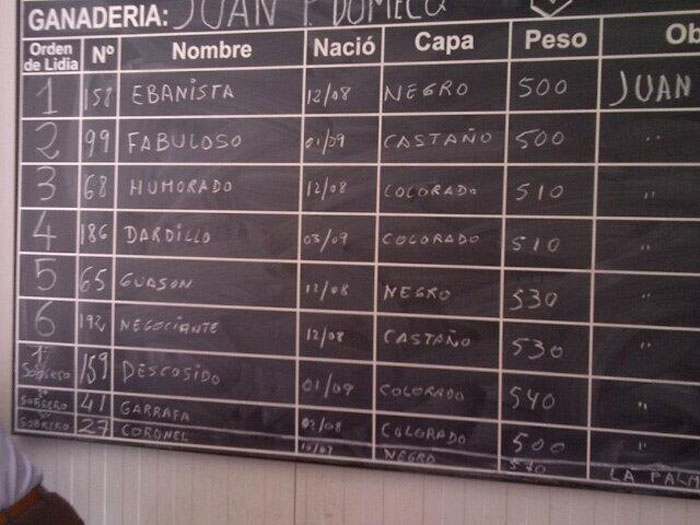 GANADERIA: JUAN P. DOMECQ
Orden de Lidia Nº Nombre Nació Capa Peso Ob
1 158 EBANISTA 12/08 NEGRO 500 JUAN
2 99 FABULOSO 01/09 CASTAÑO 500 "
3 68 HUMORADO 12/08 COLORADO 510 "
4 186 DARDILLO 03/09 COLORADO 510 "
5 65 GUASON 12/08 NEGRO 530 "
6 192 NEGOCIANTE 12/08 CASTAÑO 530 "
1º SOBRERO 159 DESCOSIDO 01/09 COLORADO 540 "
SOBRERO 41 GARRAFA 02/08 COLORADO 500 "
SOBRERO 27 CORONEL NEGRO 570 LA PALM